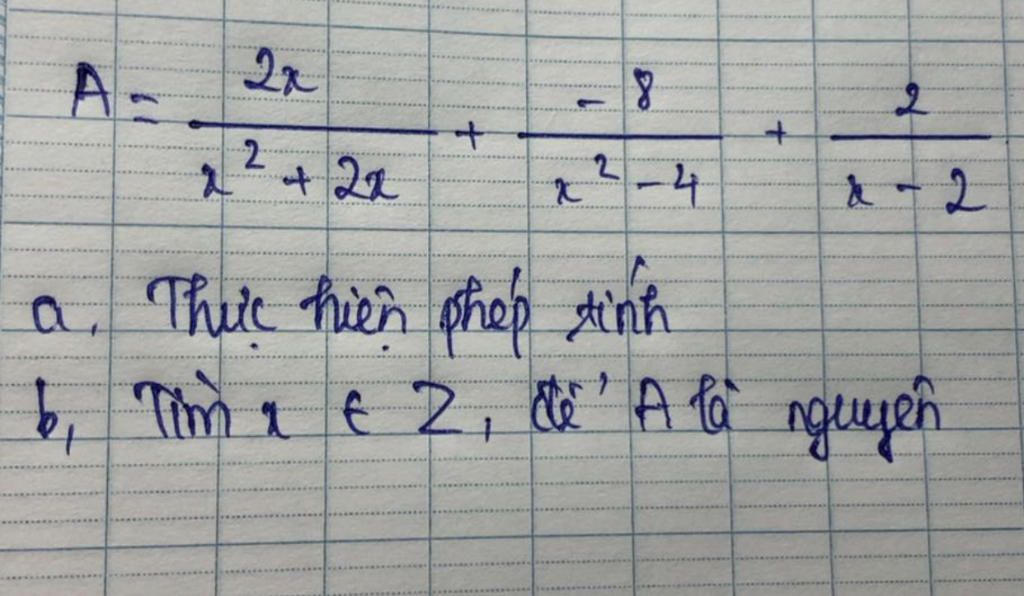 A = \frac{2x}{x^2 + 2x} + \frac{-8}{x^2 - 4} + \frac{2}{x - 2}
a, Thực hiện phép tính
b, Tìm x ∈ Z, để A là nguyên